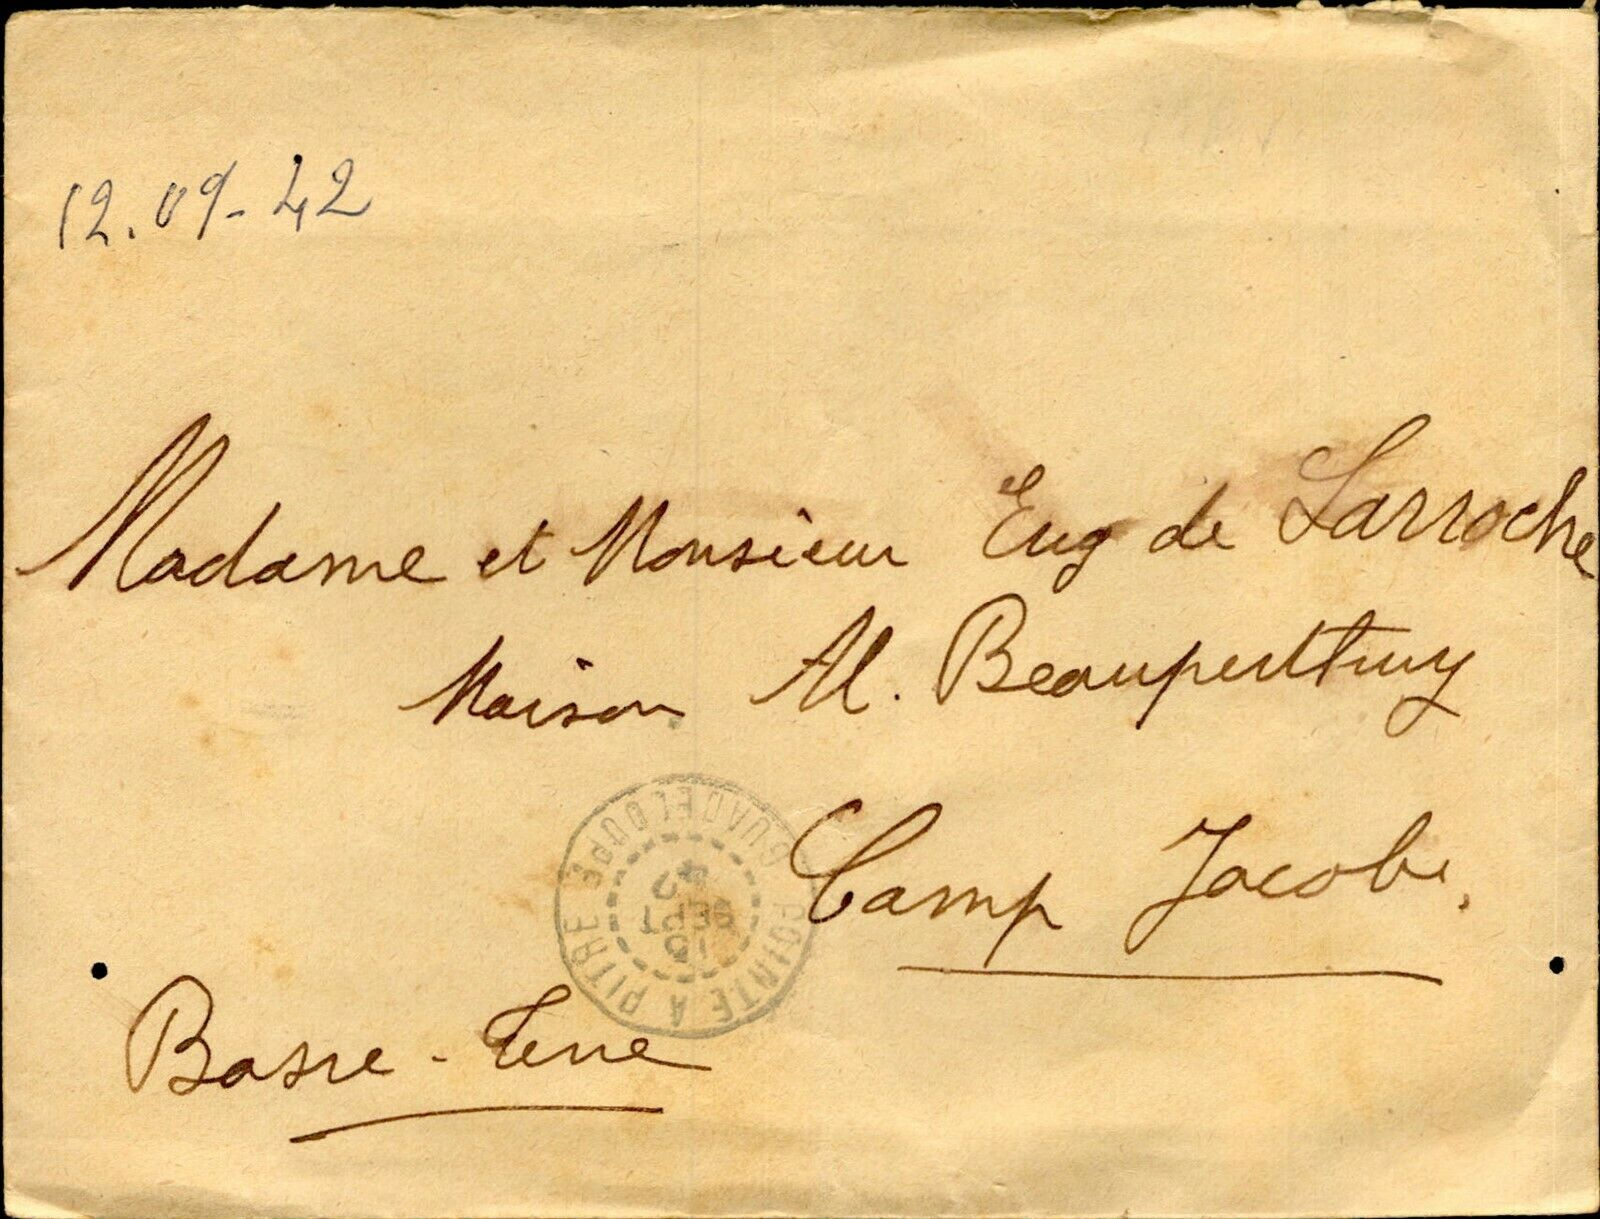 12.09-42
Madame et Monsieur Eug de Larroche
Maison Al. Beauperthuy
GUADELOUPE
42
SEPT
10
POINTE A PITRE
Camp Jacob.
Basse-Terre